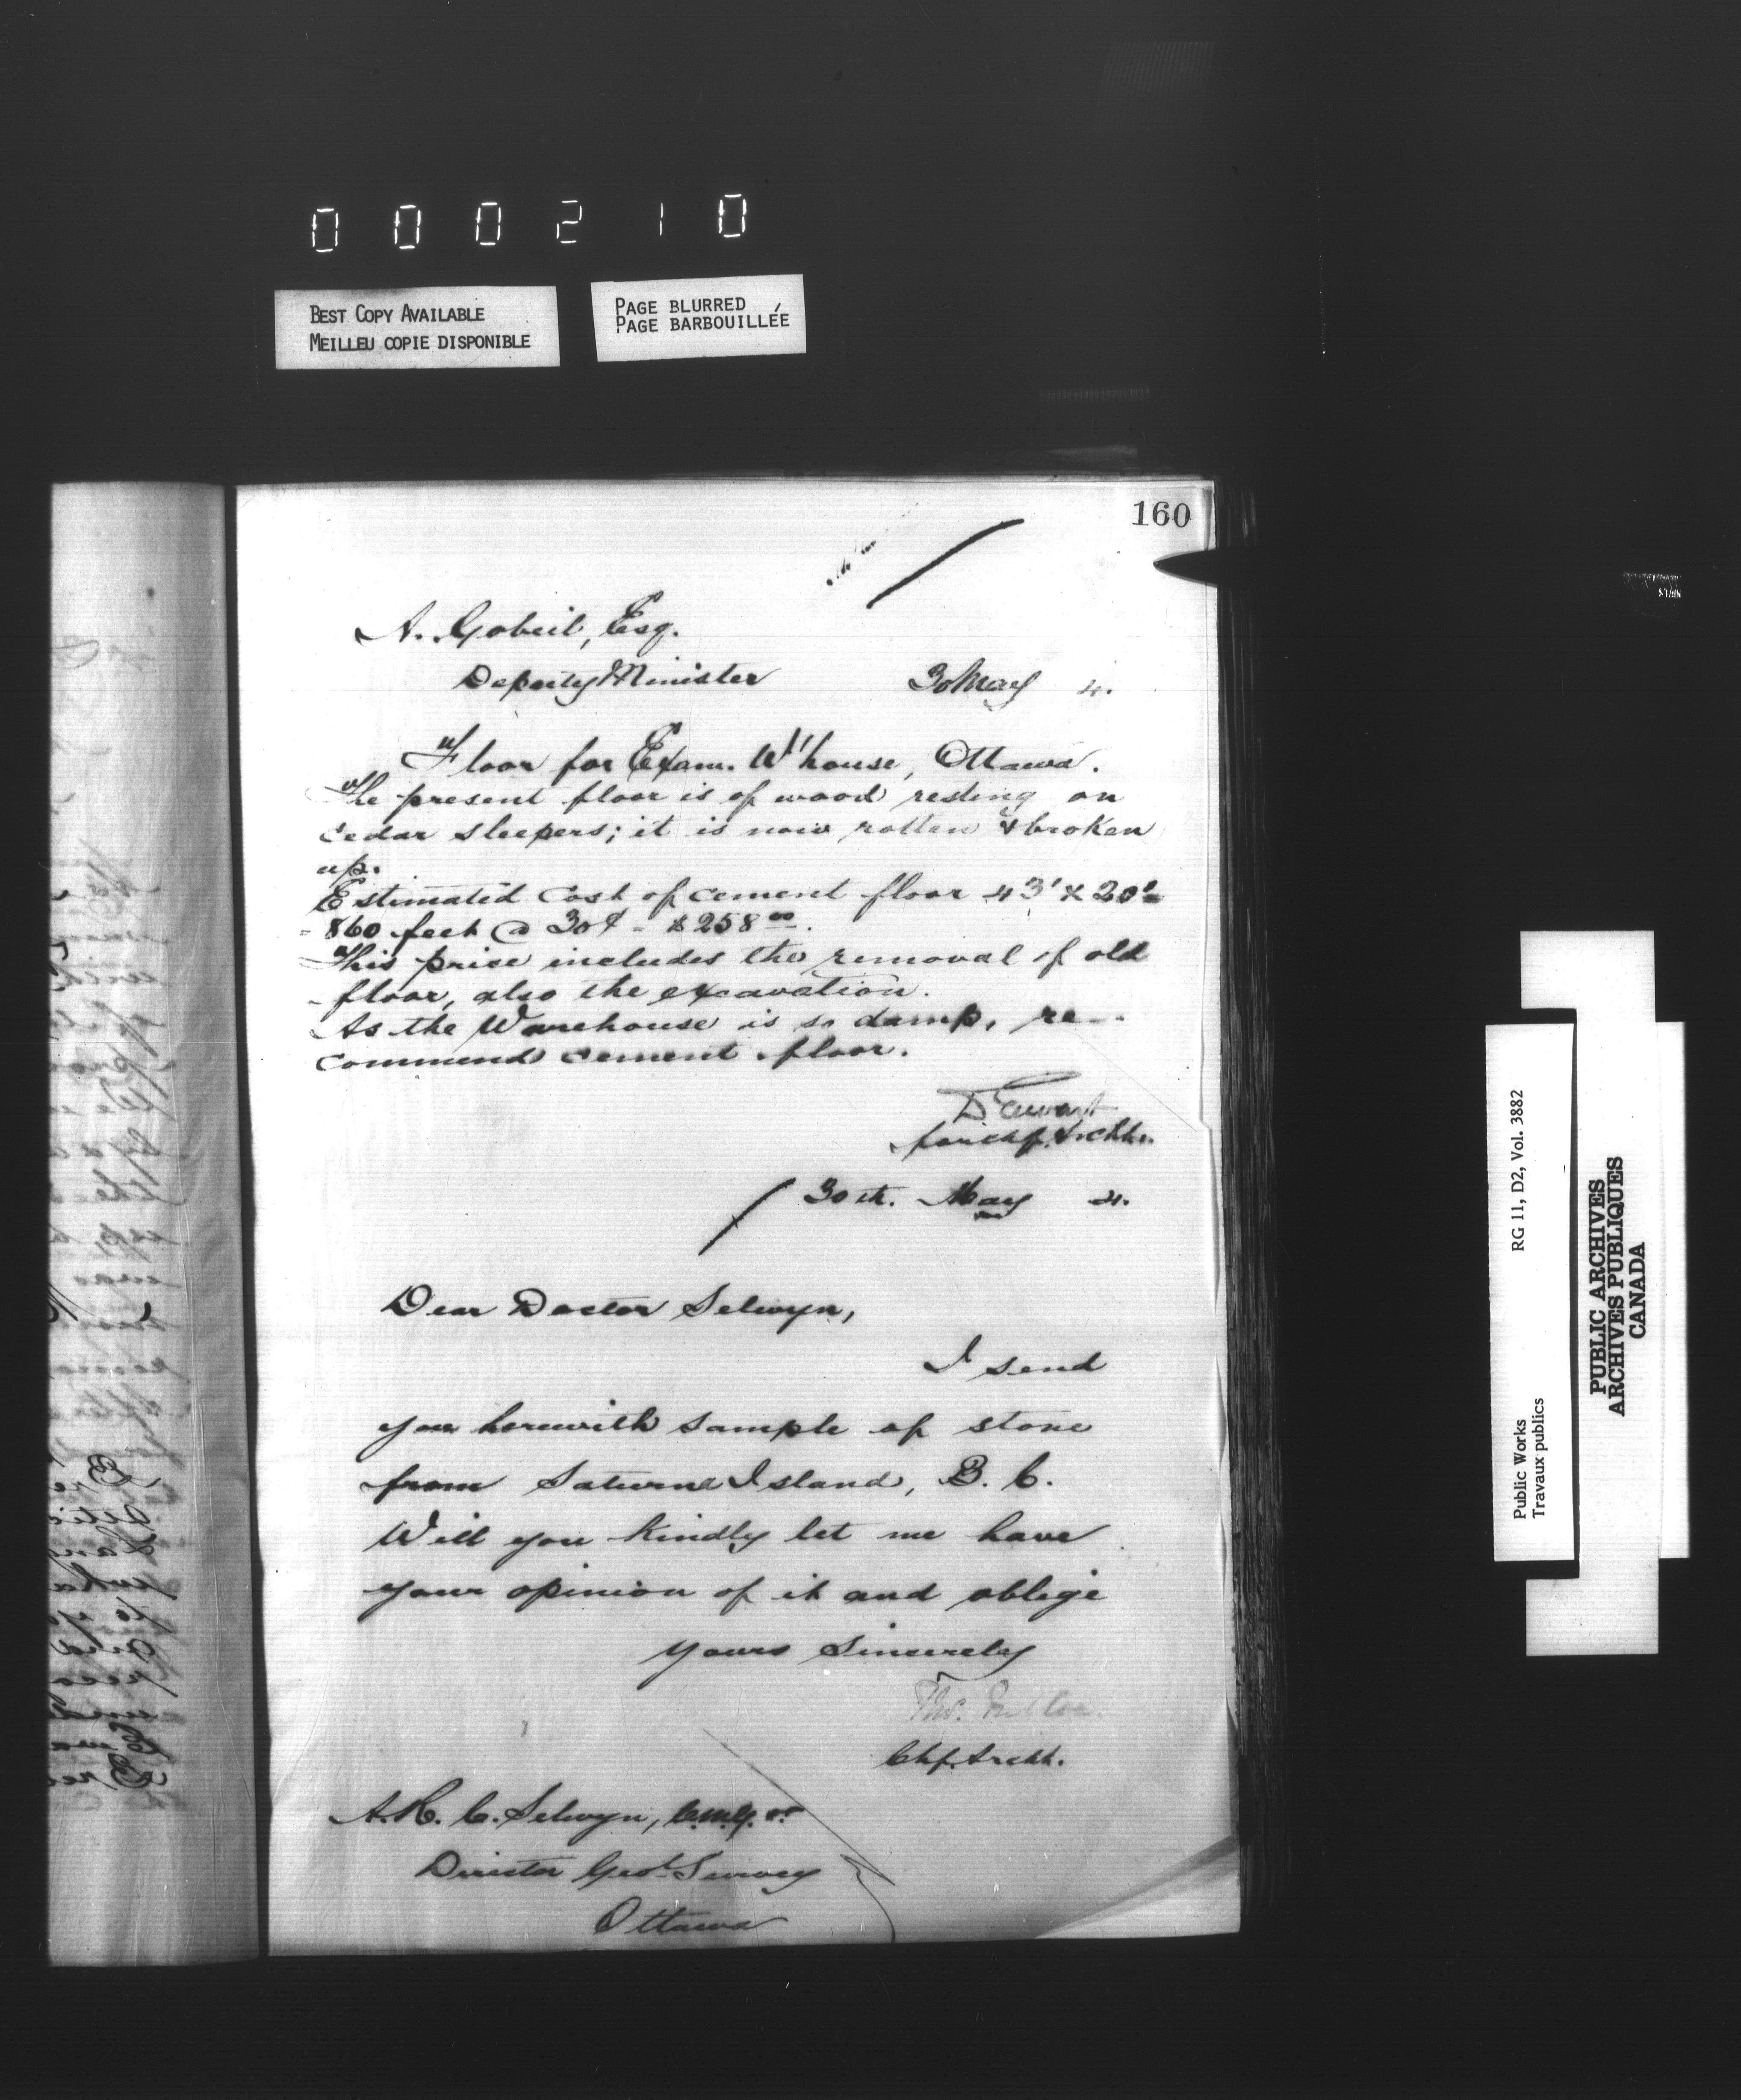 000210
BEST COPY AVAILABLE
MEILLEU COPIE DISPONIBLE
PAGE BLURRED
PAGE BARBOUILLÉE
160
A. Gobeil, Esq.
Deputy Minister 30 May 4.
Floor for Exam. W'house, Ottawa.
The present floor is of wood resting on
cedar sleepers; it is now rotten & broken
up.
Estimated cost of cement floor 43' x 20' =
= 860 feet @ 30¢ = $258 00.
This price includes the removal of old
floor, also the excavation.
As the Warehouse is so damp, re-
commend cement floor.
D Ewart
for Chf. Archt.
30th. May 4.
Dear Doctor Selwyn,
I send
you herewith sample of stone
from Saturna Island, B. C.
Will you kindly let me have
your opinion of it and oblige
Yours Sincerely
Thos. Fuller
Chf. Archt.
A. R. C. Selwyn, C.M.G.
Director Geol. Survey
Ottawa
Public Works RG 11, D2, Vol. 3882
Travaux publics
PUBLIC ARCHIVES
ARCHIVES PUBLIQUES
CANADA